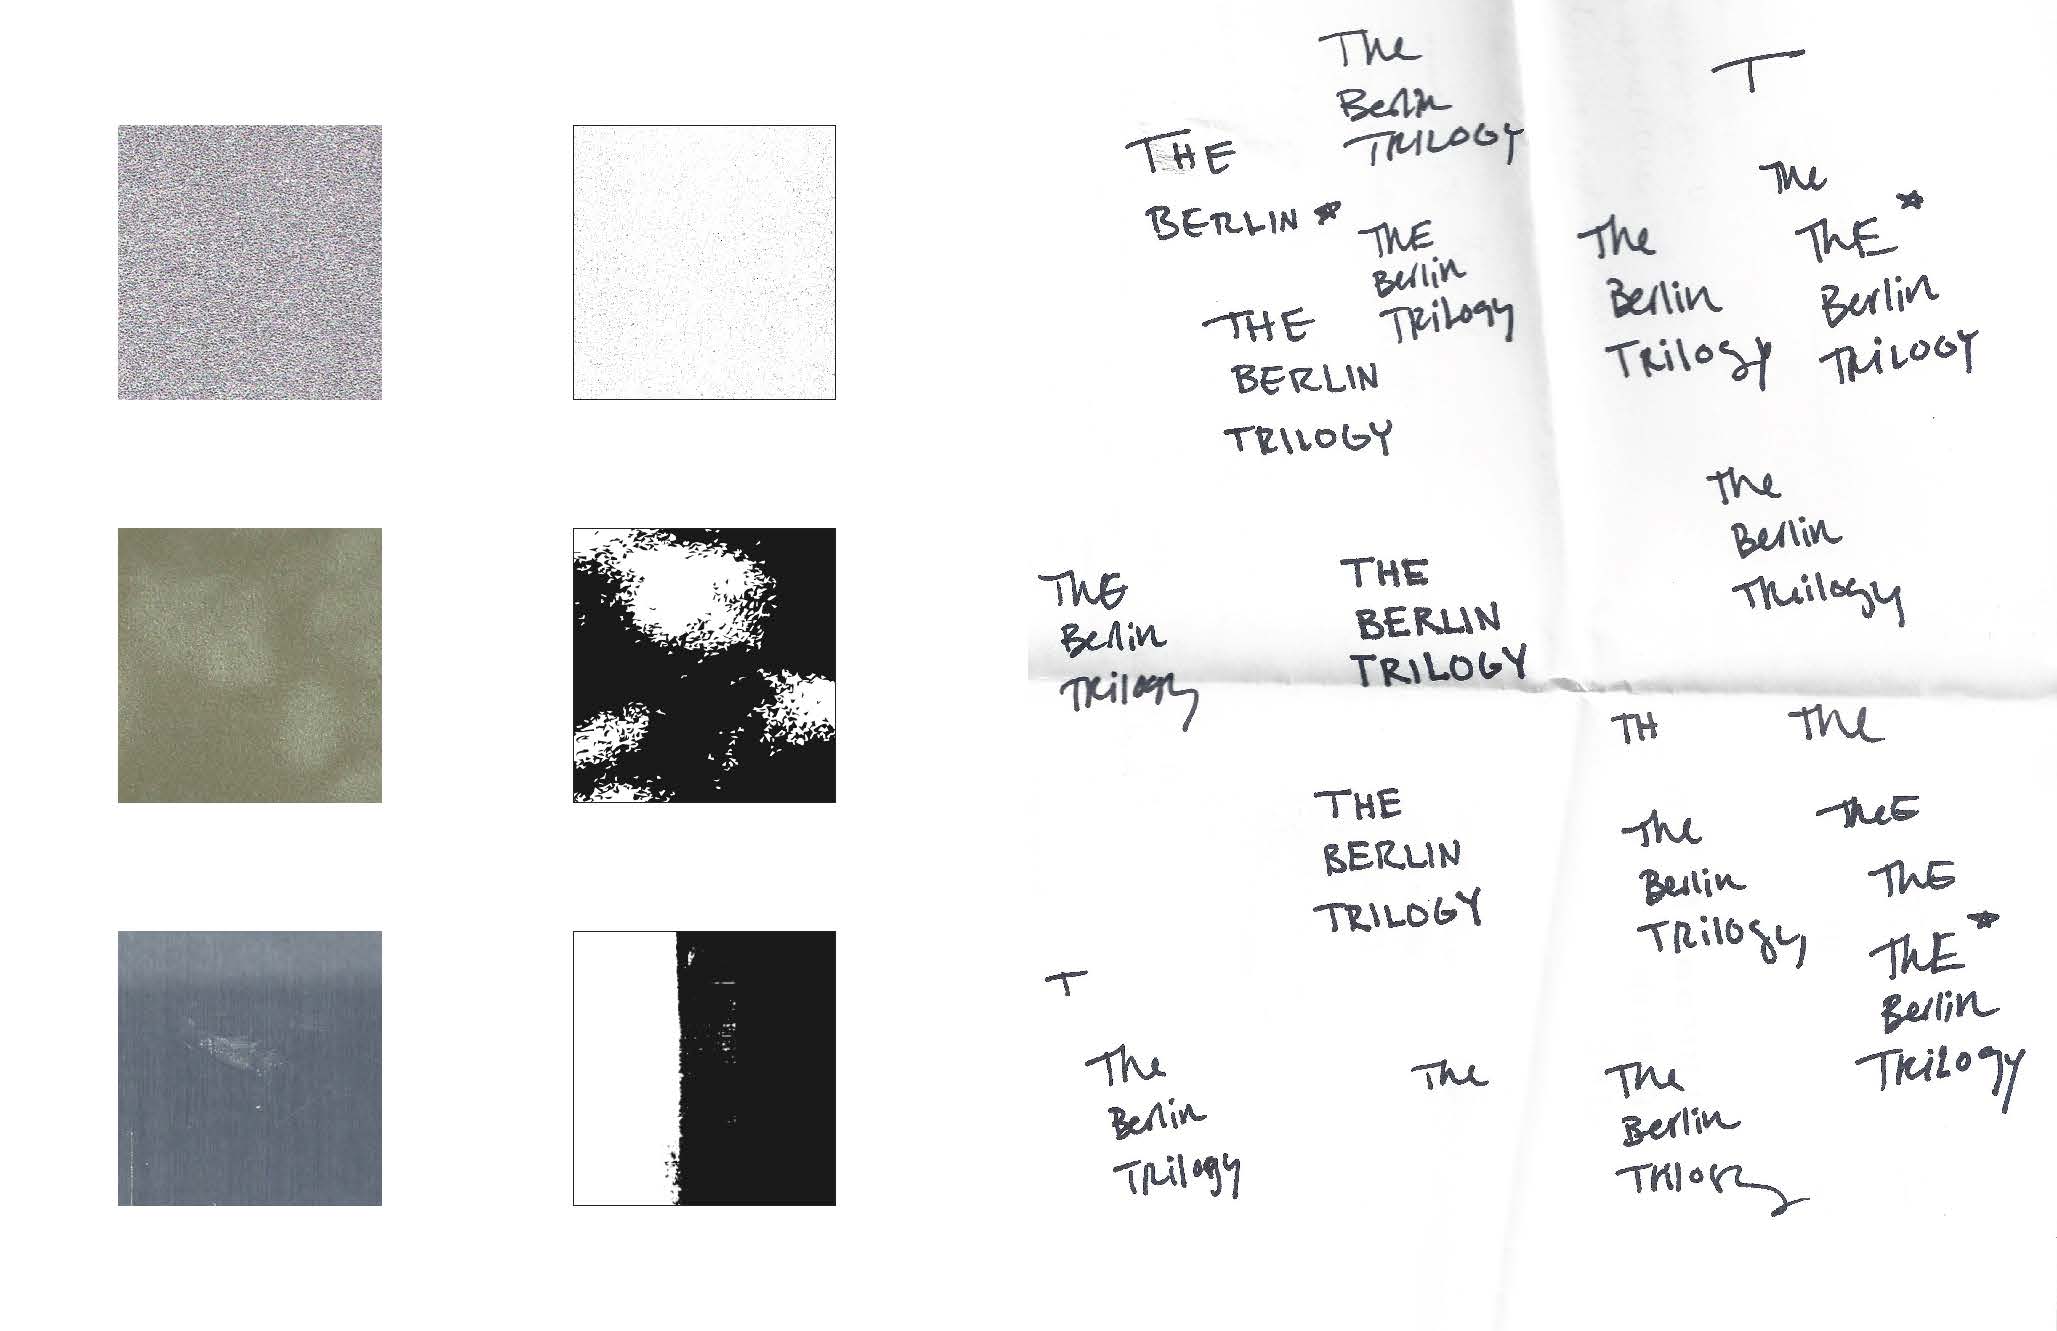 The
Berlin
TRILOGY
T
THE
BERLIN *
The
THE
Berlin
TRilogy
The
Berlin
TRilogy
THE *
Berlin
TRiLOGY
THE
BERLIN
TRILOGY
The
Berlin
TRilogy
THE
Berlin
TRilogy
THE
BERLIN
TRILOGY
TH
The
THE
BERLIN
TRILOGY
The
Berlin
TRilogy
TheE
THE
THE *
Berlin
TRiLOGY
T
The
Berlin
TRilogy
The
The
Berlin